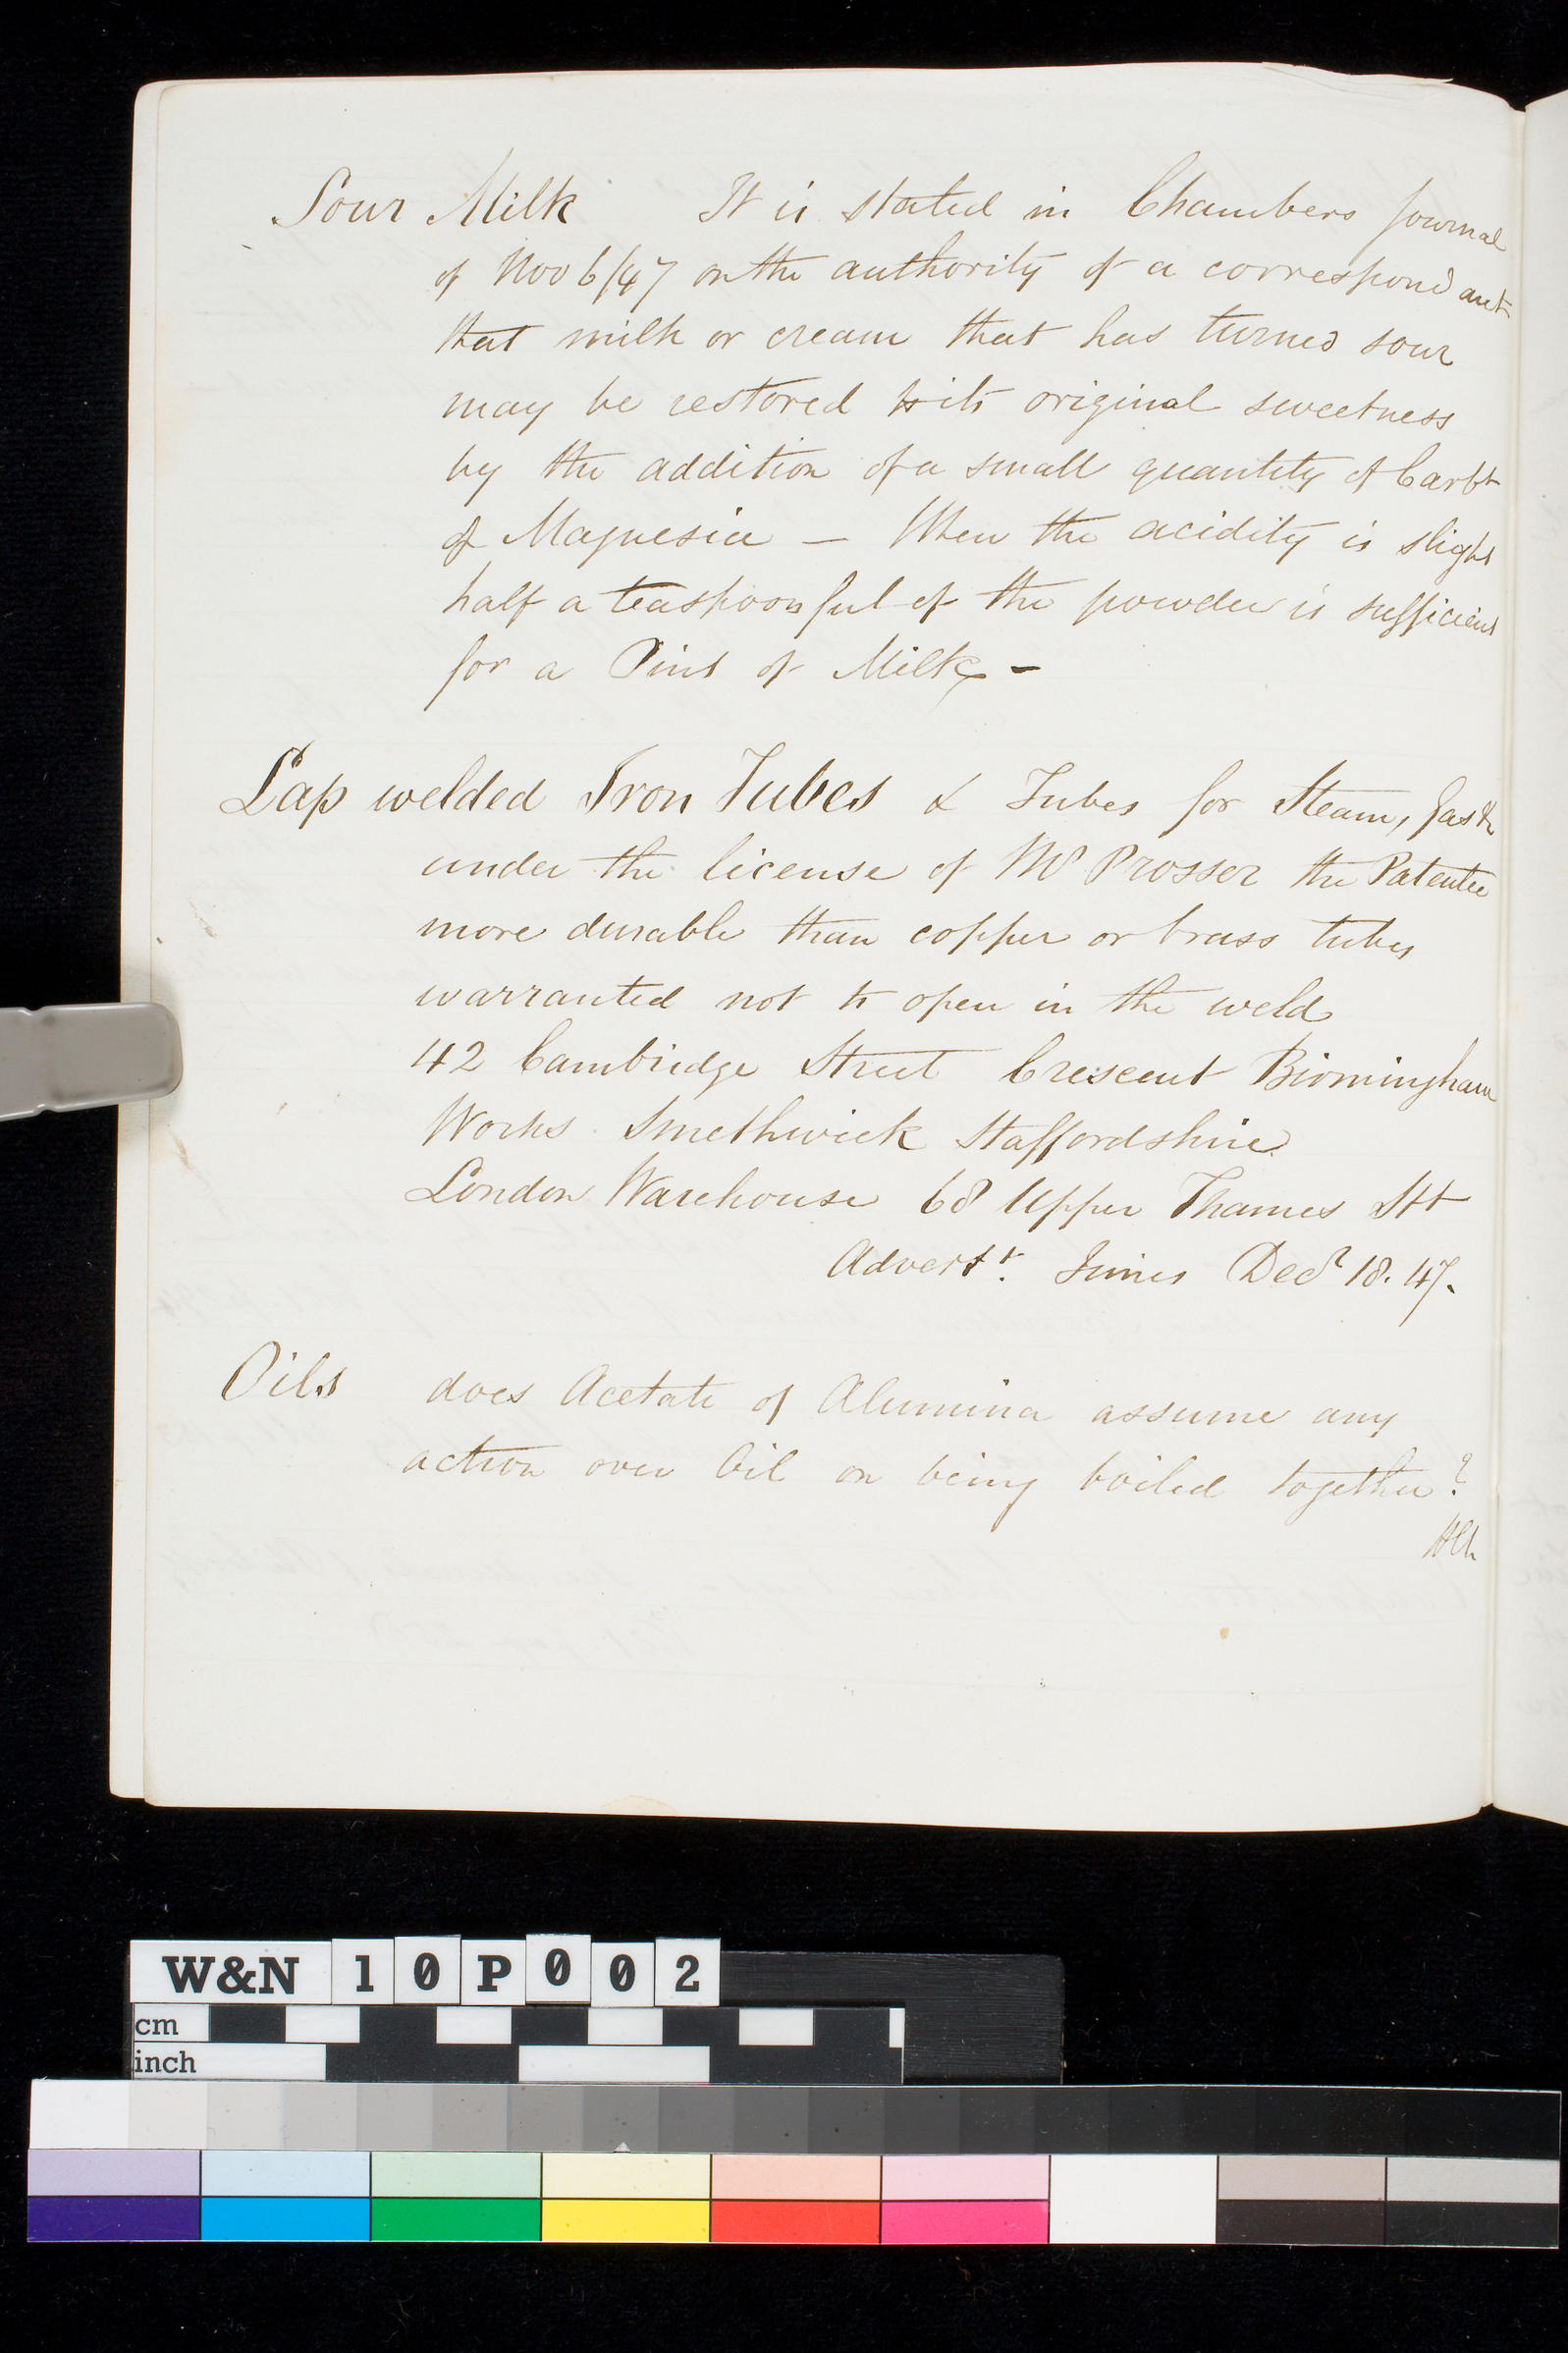 Sour Milk It is stated in Chambers Journal
of Nov 6/47 on the authority of a correspondant
that milk or cream that has turned sour
may be restored to its original sweetness
by the addition of a small quantity of Carbt
of Magnesia — When the acidity is slight
half a teaspoonful of the powder is sufficient
for a Pint of Milk -
Lap welded Iron Tubes & Tubes for Steam, Gas &c
under the license of Mr Prosser the Patentee
more durable than copper or brass tubes
warranted not to open in the weld
42 Cambridge Street Crescent Birmingham
Works Smethwick Staffordshire
London Warehouse 68 Upper Thames Stt
Advertt. Times Decr 18. 47.
Oils does Acetate of Alumina assume any
action over Oil on being boiled together?
W&N 10P002
cm
inch